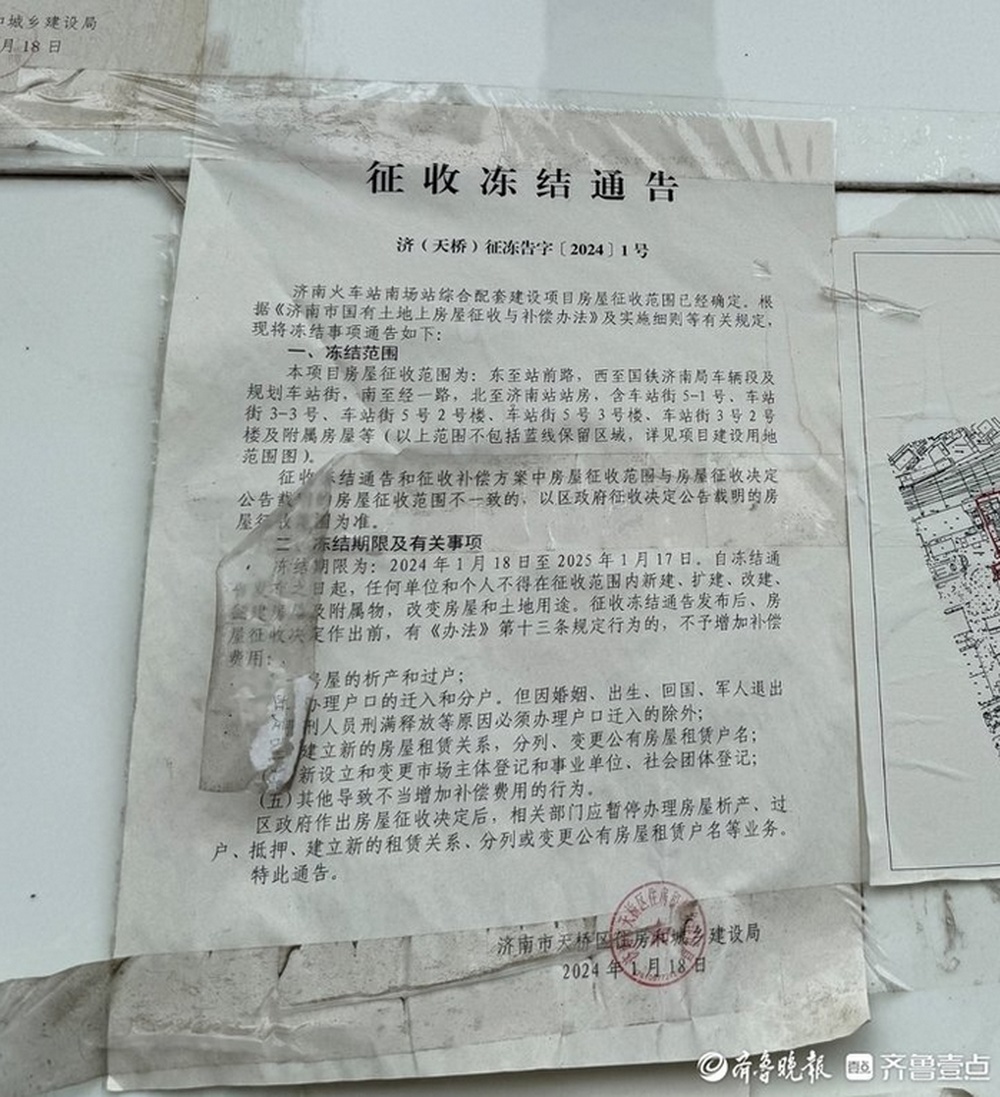 和城乡建设局
月18日
征收冻结通告
济（天桥）征冻告字〔2024〕1号
济南火车站南场站综合配套建设项目房屋征收范围已经确定。根
据《济南市国有土地上房屋征收与补偿办法》及实施细则等有关规定，
现将冻结事项通告如下：
一、冻结范围
本项目房屋征收范围为：东至站前路，西至国铁济南局车辆段及
规划车站街，南至经一路，北至济南站站房，含车站街5-1号、车站
街3-3号、车站街5号2号楼、车站街5号3号楼、车站街3号2号
楼及附属房屋等（以上范围不包括蓝线保留区域，详见项目建设用地
范围图）。
征收冻结通告和征收补偿方案中房屋征收范围与房屋征收决定
公告载明的房屋征收范围不一致的，以区政府征收决定公告载明的房
屋征收范围为准。
二、冻结期限及有关事项
冻结期限为：2024年1月18日至2025年1月17日。自冻结通
发布之日起，任何单位和个人不得在征收范围内新建、扩建、改建、
建房屋及附属物，改变房屋和土地用途。征收冻结通告发布后、房
屋征收决定作出前，有《办法》第十三条规定行为的，不予增加补偿
费用：
房屋的析产和过户；
办理户口的迁入和分户。但因婚姻、出生、回国、军人退出
刑人员刑满释放等原因必须办理户口迁入的除外；
建立新的房屋租赁关系，分列、变更公有房屋租赁户名；
新设立和变更市场主体登记和事业单位、社会团体登记；
（五）其他导致不当增加补偿费用的行为。
区政府作出房屋征收决定后，相关部门应暂停办理房屋析产、过
户、抵押、建立新的租赁关系、分列或变更公有房屋租赁户名等业务。
特此通告。
济南市天桥区住房和城乡建设局
2024年1月18日
齐鲁晚报 壹点 齐鲁壹点